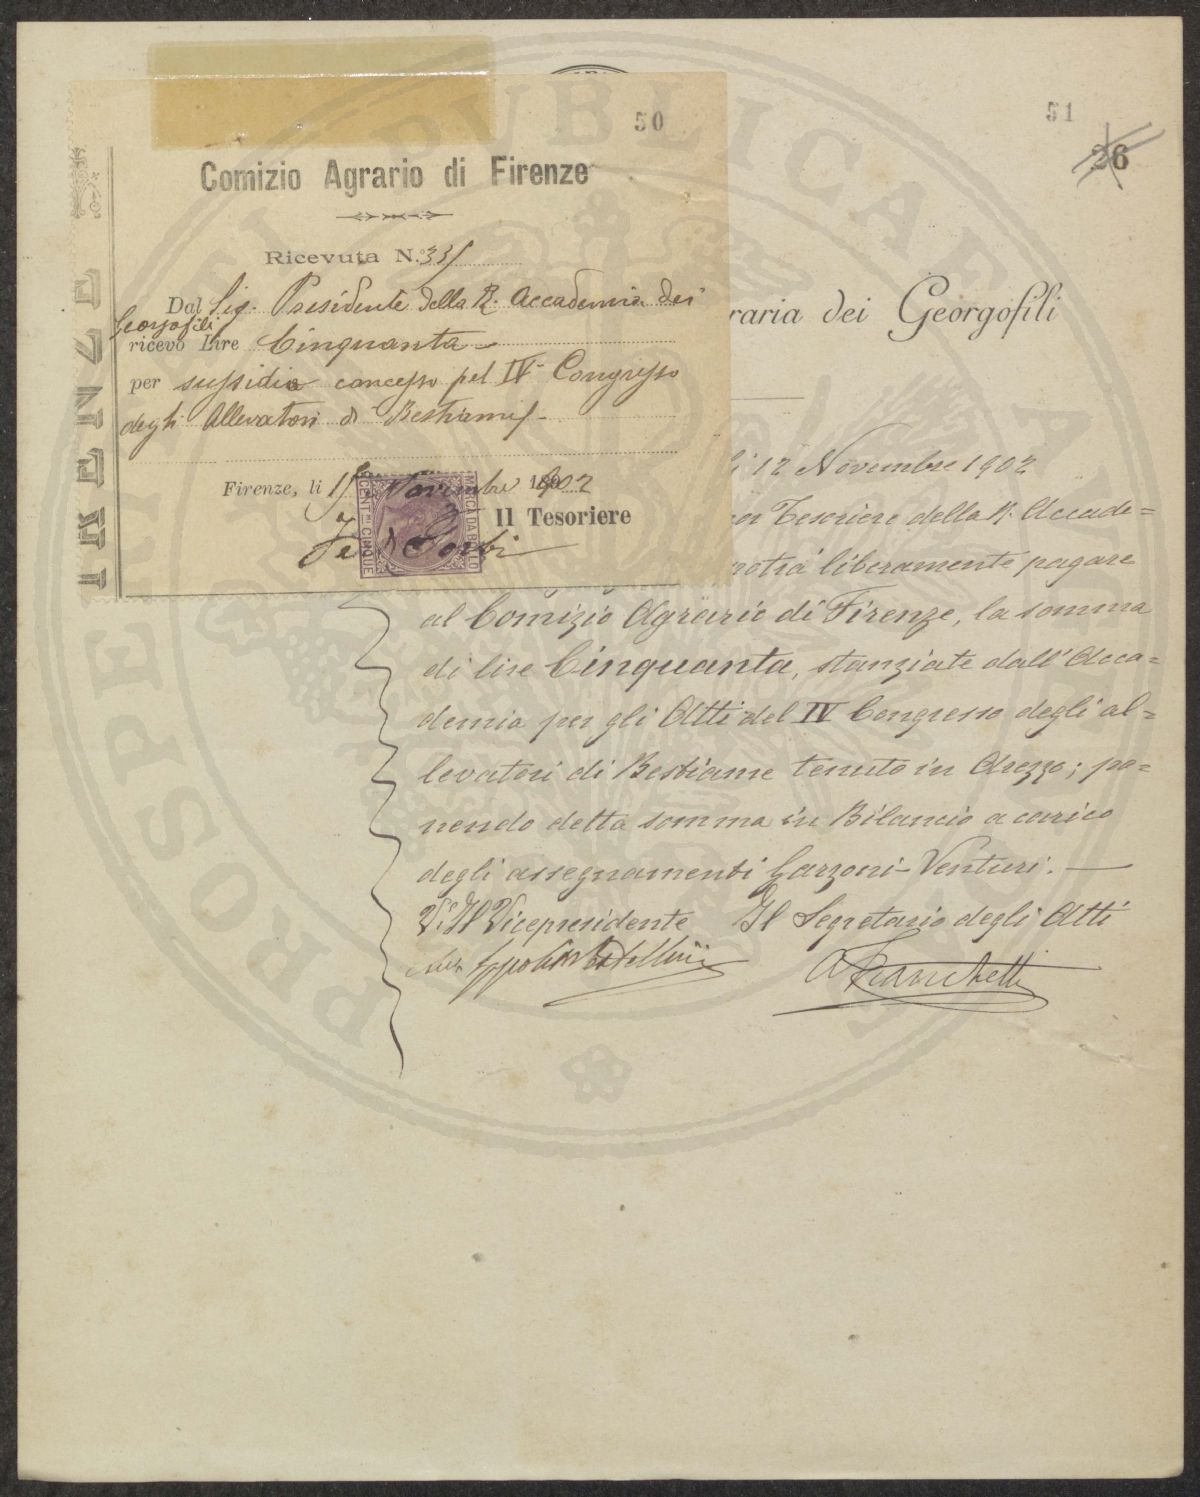 50
Comizio Agrario di Firenze
Ricevuta N.°
Dal Sig. Presidente della R. Accademia dei
Georgofili
ricevo Lire Cinquanta=
per sussidio concesso pel IV° Congresso
degli Allevatori di Bestiame
Firenze, li 15 Novembre 1902
Il Tesoriere
MARCA DA BOLLO
CENT.MI CINQUE
51
26
raria dei Georgofili
li 12 Novembre 1902
Tesoriere della R. Accade=
potrà liberamente pagare
al Comizio Agrario di Firenze, la somma
di lire Cinquanta, stanziate dall'Acca=
demia per gli Atti del IV Congresso degli al=
levatori di Bestiame tenuto in Arezzo; po=
nendo detta somma in Bilancio a carico
degli assegnamenti Garzoni-Venturi. —
V.° Il Vicepresidente Il Segretario degli Atti
A Franchetti
PROSPERITATI PUBLICAE AUGENDAE